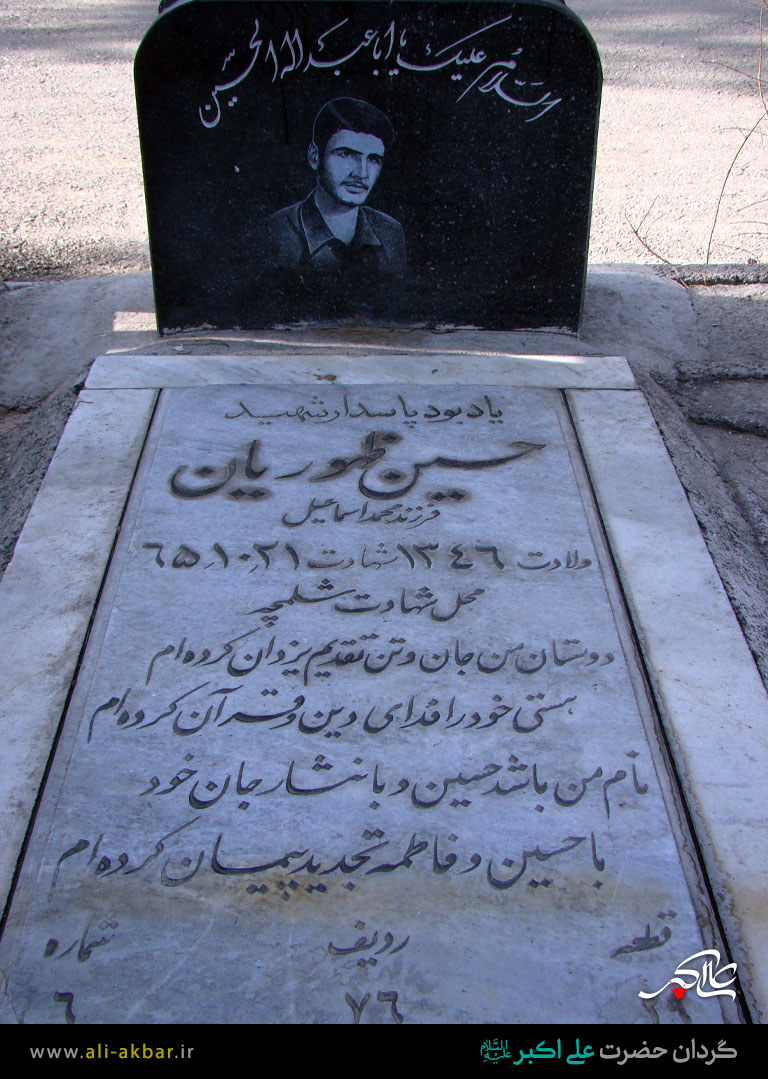 السلام علیک یا اباعبدالله الحسین
یادبود پاسدار شهید
حسین ظهوریان
فرزند محمد اسماعیل
ولادت ۱۳۴۶ شهادت ۶۵٫۱۰٫۲۱
محل شهادت شلمچه
دوستان من جان و تن تقدیم یزدان کرده ام
هستی خود را فدای دین و قرآن کرده ام
نام من باشد حسین و با نثار جان خود
با حسین و فاطمه تجدید پیمان کرده ام
قطعه ردیف شماره
۷۶ ۶
علی اکبر
گردان حضرت علی اکبر علیه السلام
www.ali-akbar.ir